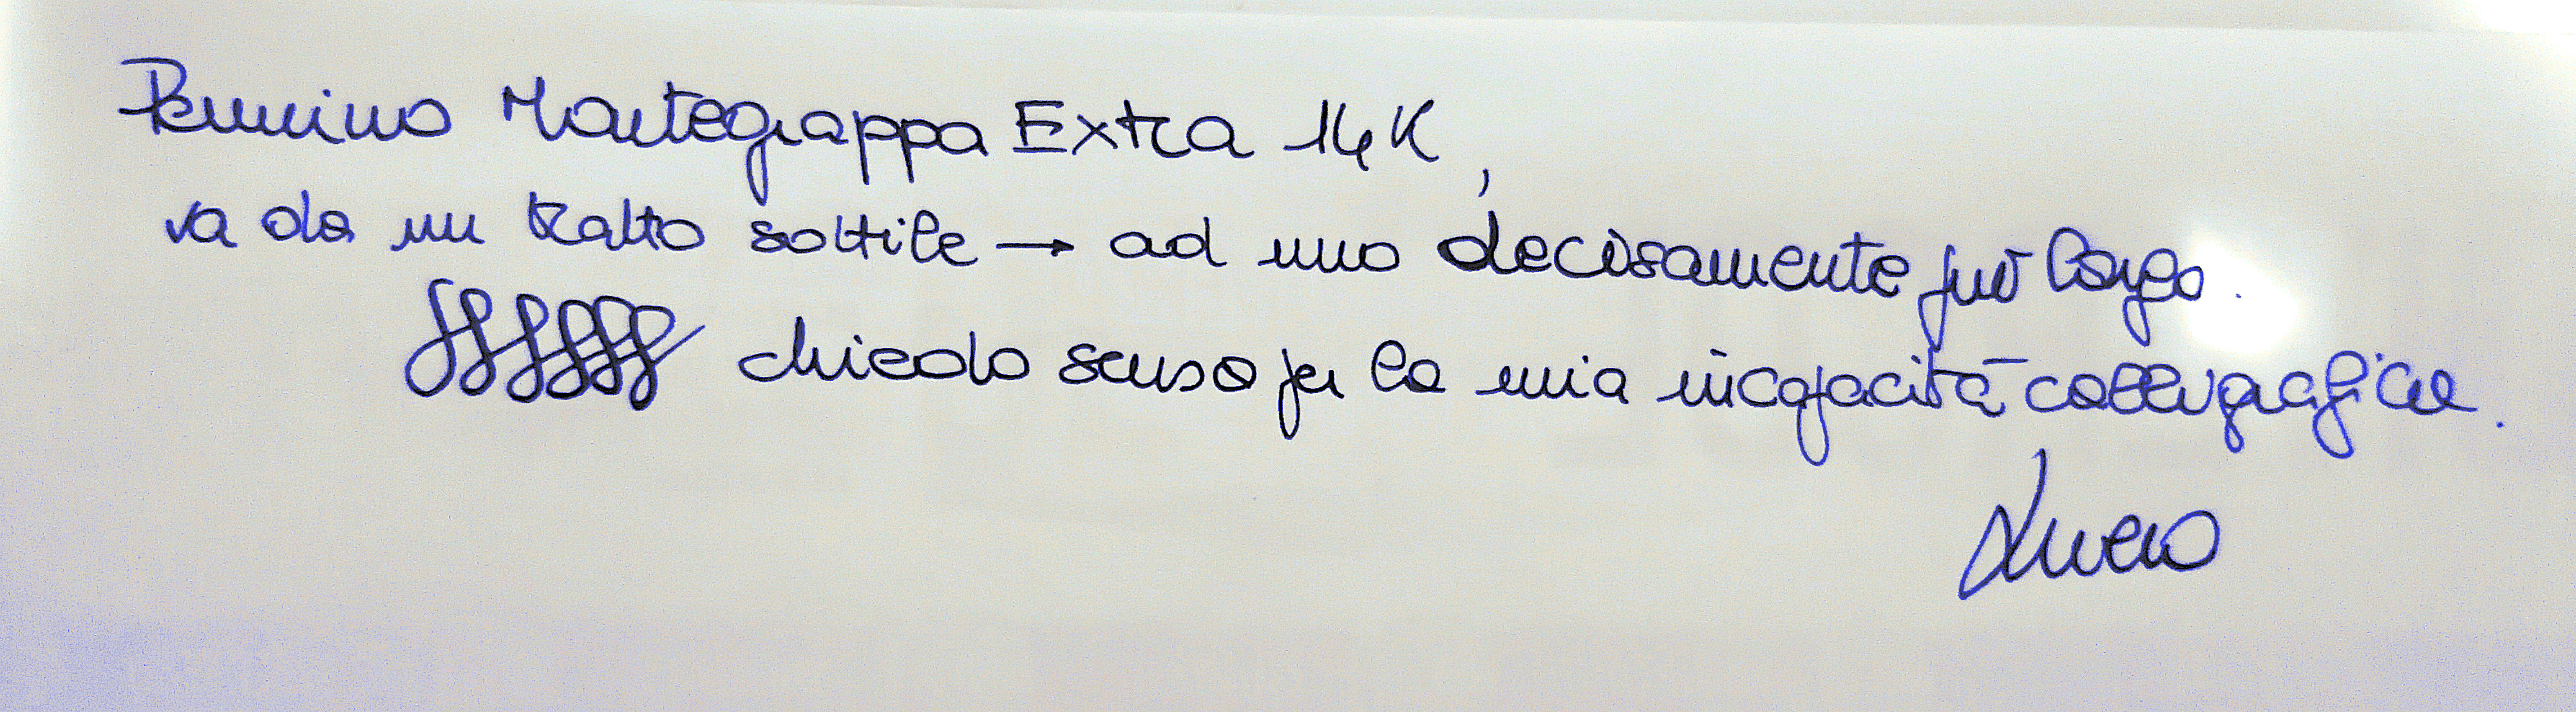 Pennino Montegrappa Extra 14K,
va da un tratto sottile → ad uno decisamente più largo.
chiedo scusa per la mia incapacità calligrafica.